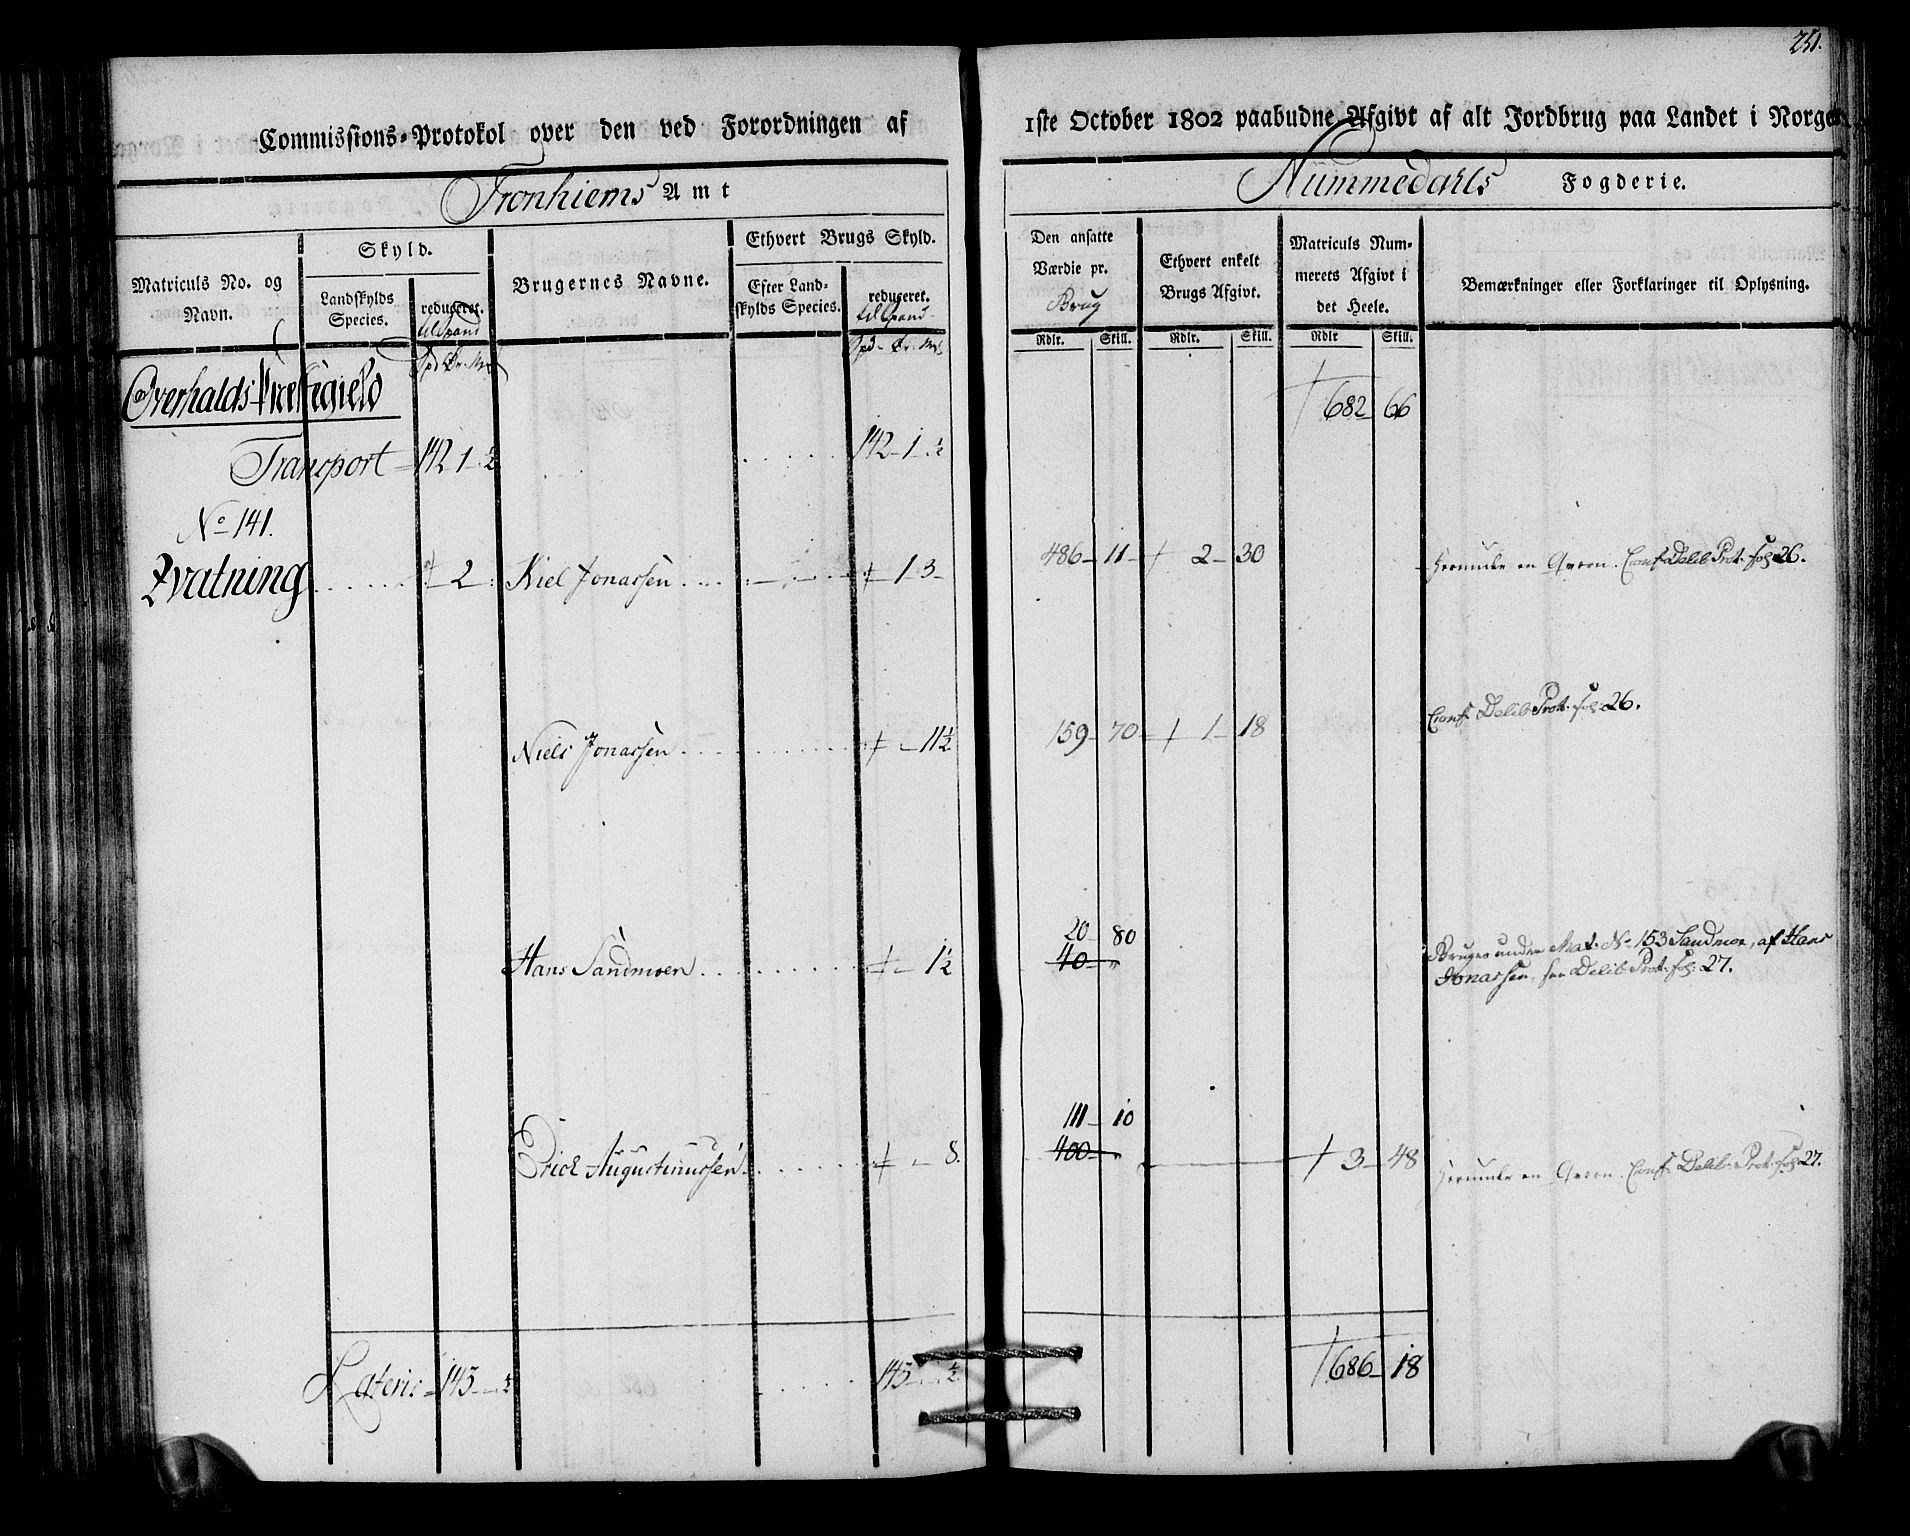 251.
Commissions-Protokol over den ved Forordningen af 1ste October 1802 paabudne Afgivt af alt Jordbrug paa Landet i Norge.
Tronhiems Amt
Nummedahls Fogderie.
Matriculs No. og Navn.
Skyld.
Landskylds Species.
reduceret. til Spand
Spd Ør. Mk
Brugernes Navne.
Ethvert Brugs Skyld.
Efter Landskylds Species.
reduceret. til Spand
Spd - Ør. Mk
Den ansatte Værdie pr. Brug
Rdlr. Skill.
Ethvert enkelt Brugs Afgivt.
Rdlr. Skill.
Matriculs Nummerets Afgivt i det Heele.
Rdlr Skill.
Bemærkninger eller Forklaringer til Oplysning.
Overhalds Præstegield
682 66
Transport 142 1 ½ 142 - 1 ½
No 141.
Qvatning 2 Kiel Jonassen 1 3 486 - 11 2 - 30 Herunder en Qvern. Conf. Delib. Prot. fol. 26.
Niels Jonassen 1 1½ 159 - 70 1 - 18 Conf. Delib. Prot. fol. 26.
20 - 80
Hans Sandmoen 1½ 40 - " Bruges under Mat. No 153 Sandmoe, af Hans
Jonassen, see Delib. Prot. fol. 27.
111 - 10
Erick Augustinussen 8. 400 - " 3 - 48 Herunder en Qvern. Conf. Delib. Prot. fol. 27.
Lateris 145 ½ 145 ½ 686 - 18